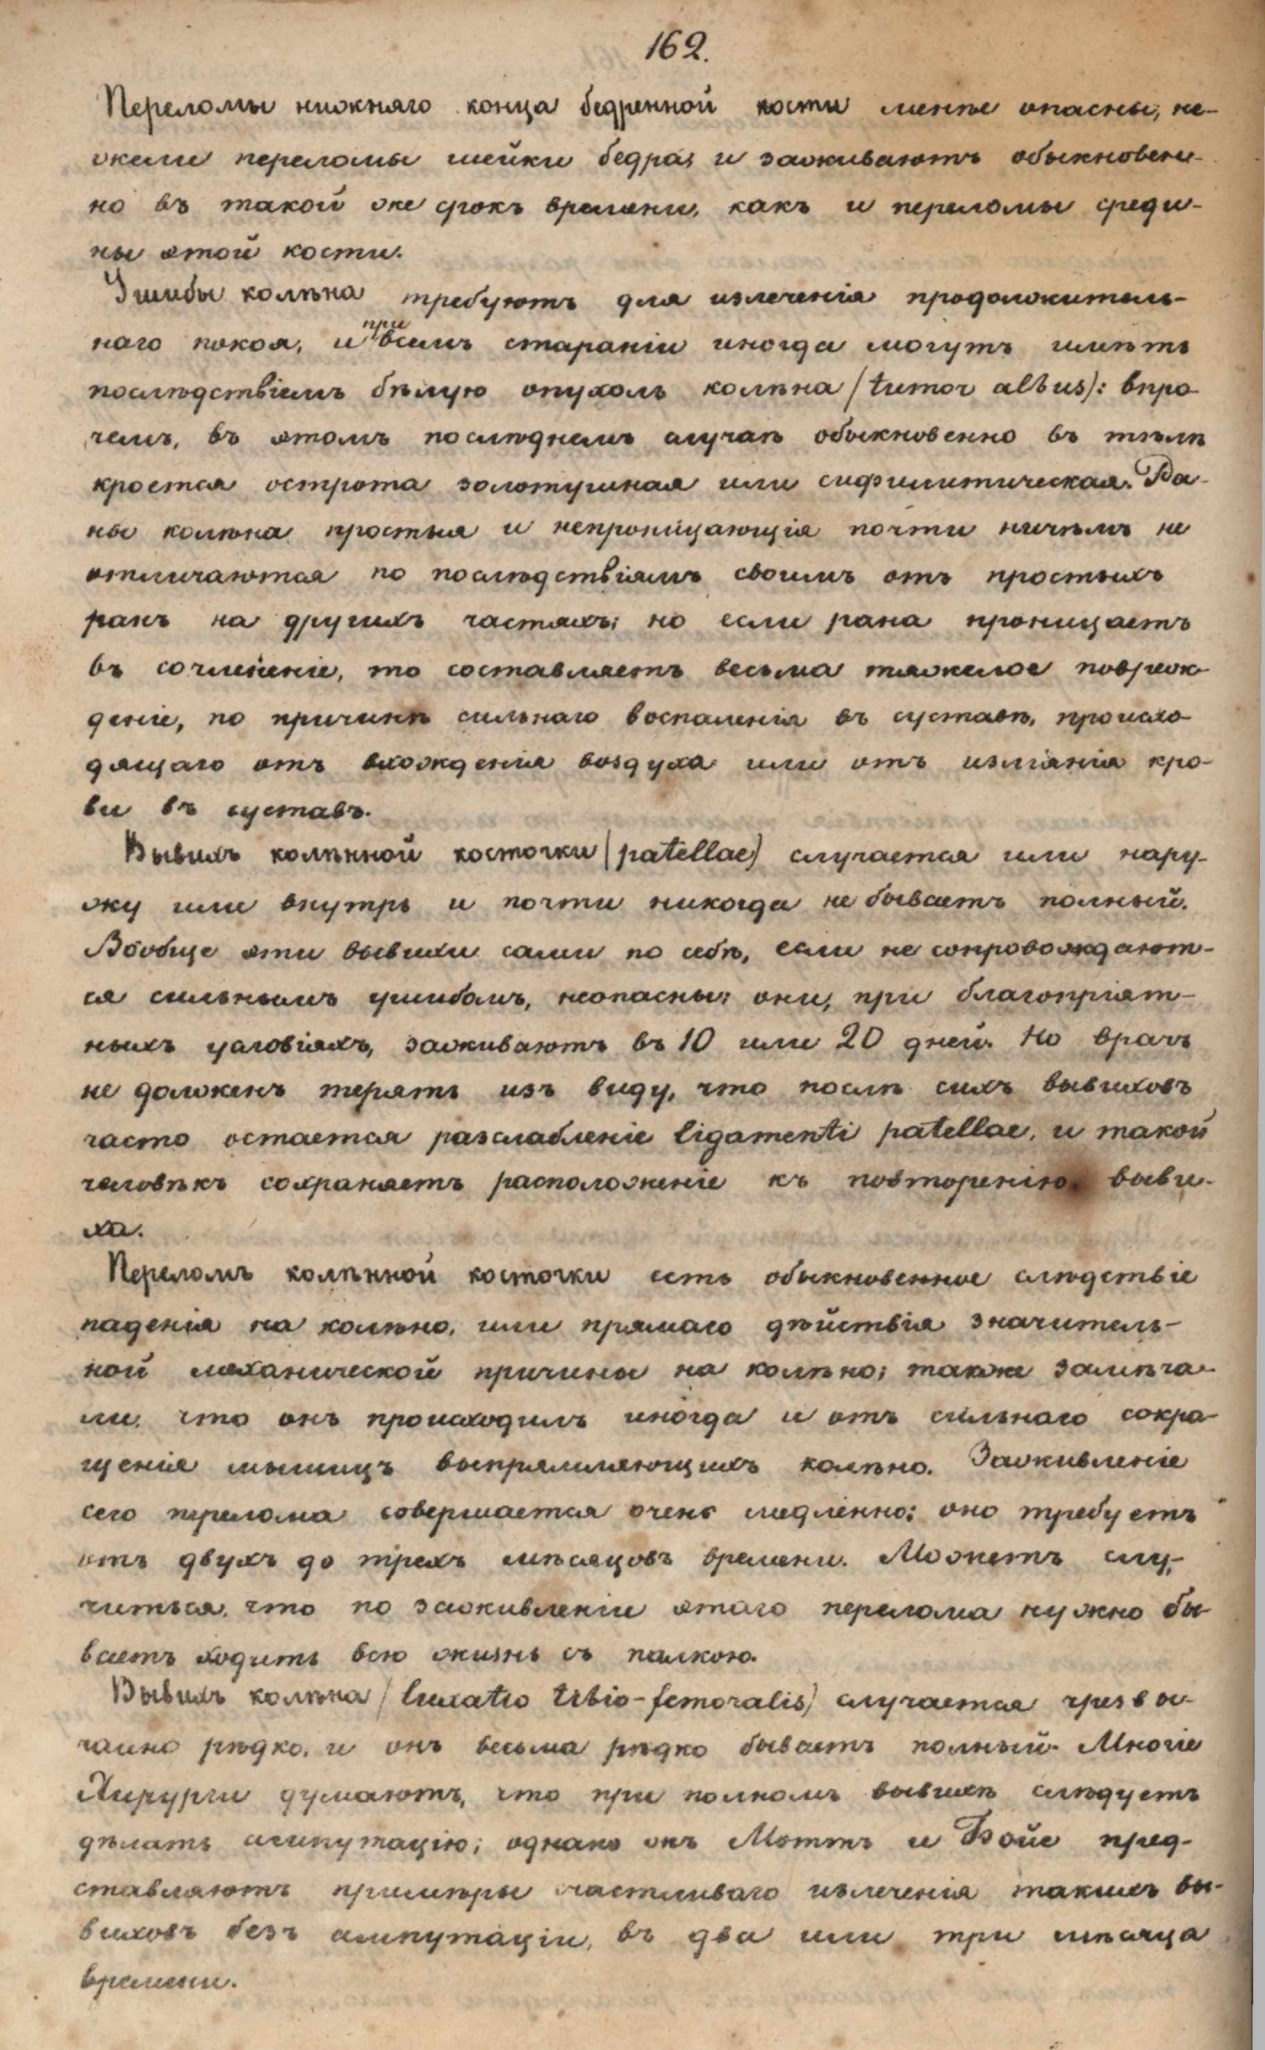 162.
Переломы нижняго конца бедренной кости менѣе опасны, не-
жели переломы шейки бедра, и заживаютъ обыкновен-
но въ такой же срокъ времени, какъ и переломы среди-
ны этой кости.
Ушибы колѣна требуютъ для излеченія продолжитель-
наго покоя, и при всемъ стараніи иногда могутъ имѣть
послѣдствіемъ бѣлую опухоль колѣна (tumor albus): впро-
чемъ, въ этомъ послѣднемъ случаѣ обыкновенно въ тѣлѣ
кроется острота золотушная или сифилитическая. Ра-
ны колѣна простыя и непроницающія почти ничѣмъ не
отличаются по послѣдствіямъ своимъ отъ простыхъ
ранъ на другихъ частяхъ; но если рана проницаетъ
въ сочлененіе, то составляетъ весьма тяжелое повреж-
деніе, по причинѣ сильнаго воспаленія въ суставѣ, происхо-
дящаго отъ вхожденія воздуха или отъ изліянія кро-
ви въ суставъ.
Вывихъ колѣнной косточки (patellae) случается или нару-
жу или внутрь и почти никогда не бываетъ полный.
Вообще эти вывихи сами по себѣ, если не сопровождают-
ся сильнымъ ушибомъ, неопасны; они, при благопріят-
ныхъ условіяхъ, заживаютъ въ 10 или 20 дней. Но врачъ
не долженъ терять изъ виду, что послѣ сихъ вывиховъ
часто остается разслабленіе ligamenti patellae, и такой
человѣкъ сохраняетъ расположеніе къ повторенію выви-
ха.
Переломъ колѣнной косточки есть обыкновенное слѣдствіе
паденія на колѣно, или прямаго дѣйствія значитель-
ной механической причины на колѣно; также замѣча-
ли, что онъ происходилъ иногда и отъ сильнаго сокра-
щенія мышицъ выпрямляющихъ колѣно. Заживленіе
сего перелома совершается очень медленно: оно требуетъ
отъ двухъ до трехъ мѣсяцовъ времени. Можетъ слу-
читься, что по заживленіи этаго перелома нужно бы-
ваетъ ходить всю жизнь съ палкою.
Вывихъ колѣна (luxatio tibio-femoralis) случается чрезвы-
чайно рѣдко, и онъ весьма рѣдко бываетъ полный. Многіе
Хирурги думаютъ, что при полномъ вывихѣ слѣдуетъ
дѣлать ампутацію; однако онъ Моттъ и Бойе пред-
ставляютъ примѣры счастливаго излеченія такихъ вы-
виховъ безъ ампутаціи, въ два или три мѣсяца
времени.